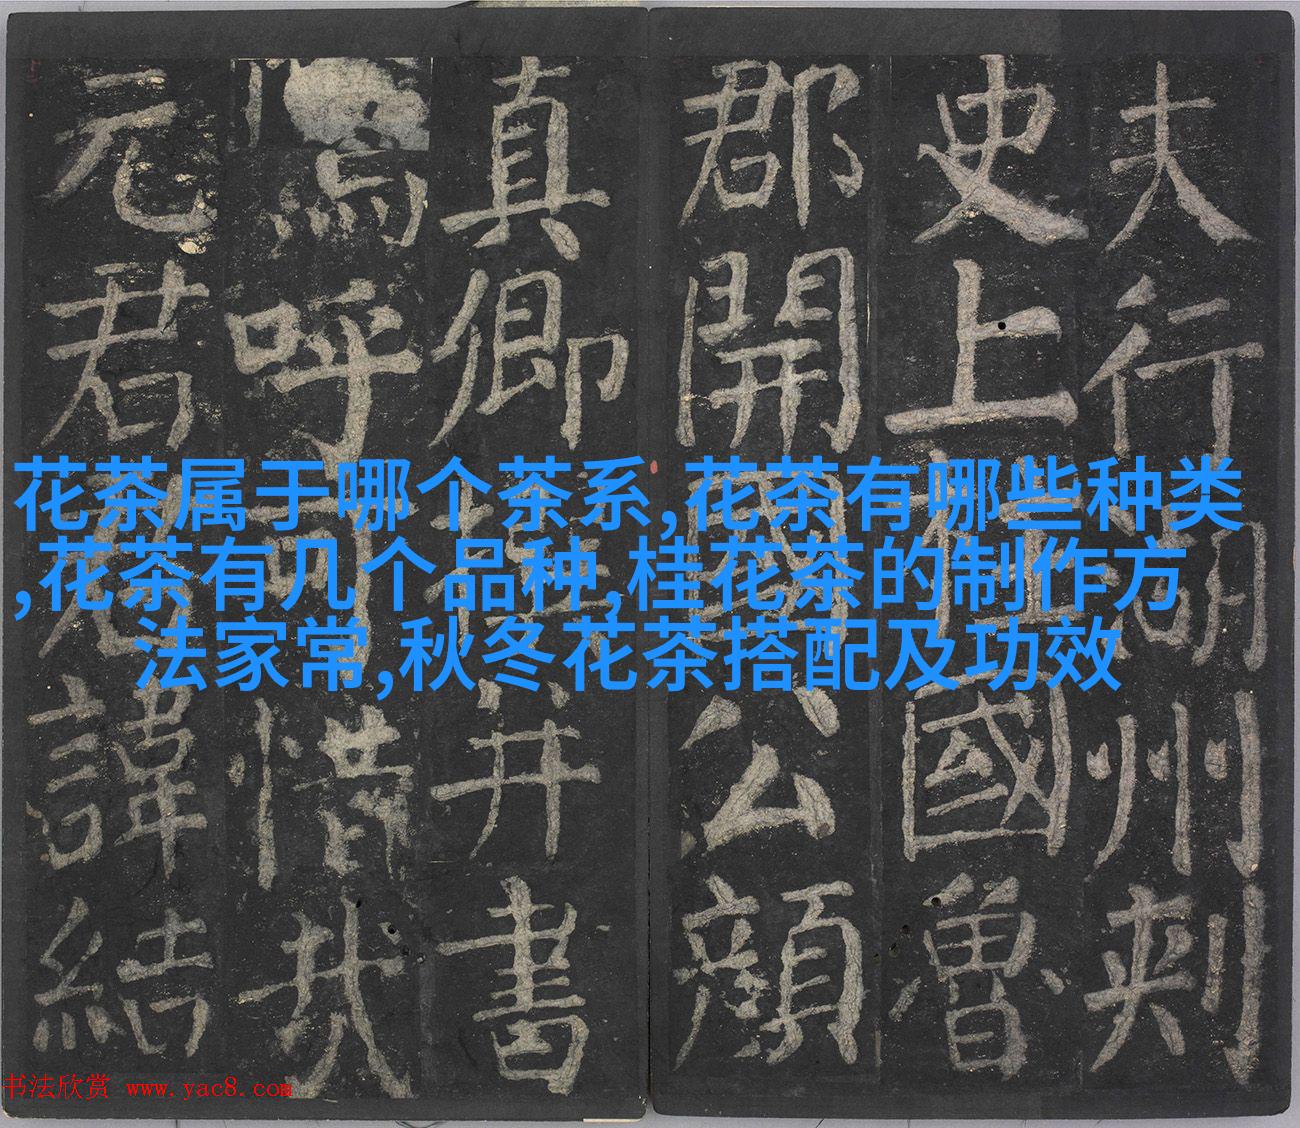 花茶属于哪个茶系,花茶有哪些种类
,花茶有几个品种,桂花茶的制作方
法家常,秋冬花茶搭配及功效
夫行湖州刾
史上柱國魯
郡開國公顔
真卿撰并書
嗚呼可惜哉
元君諱結
书法欣赏 www.yac8.com